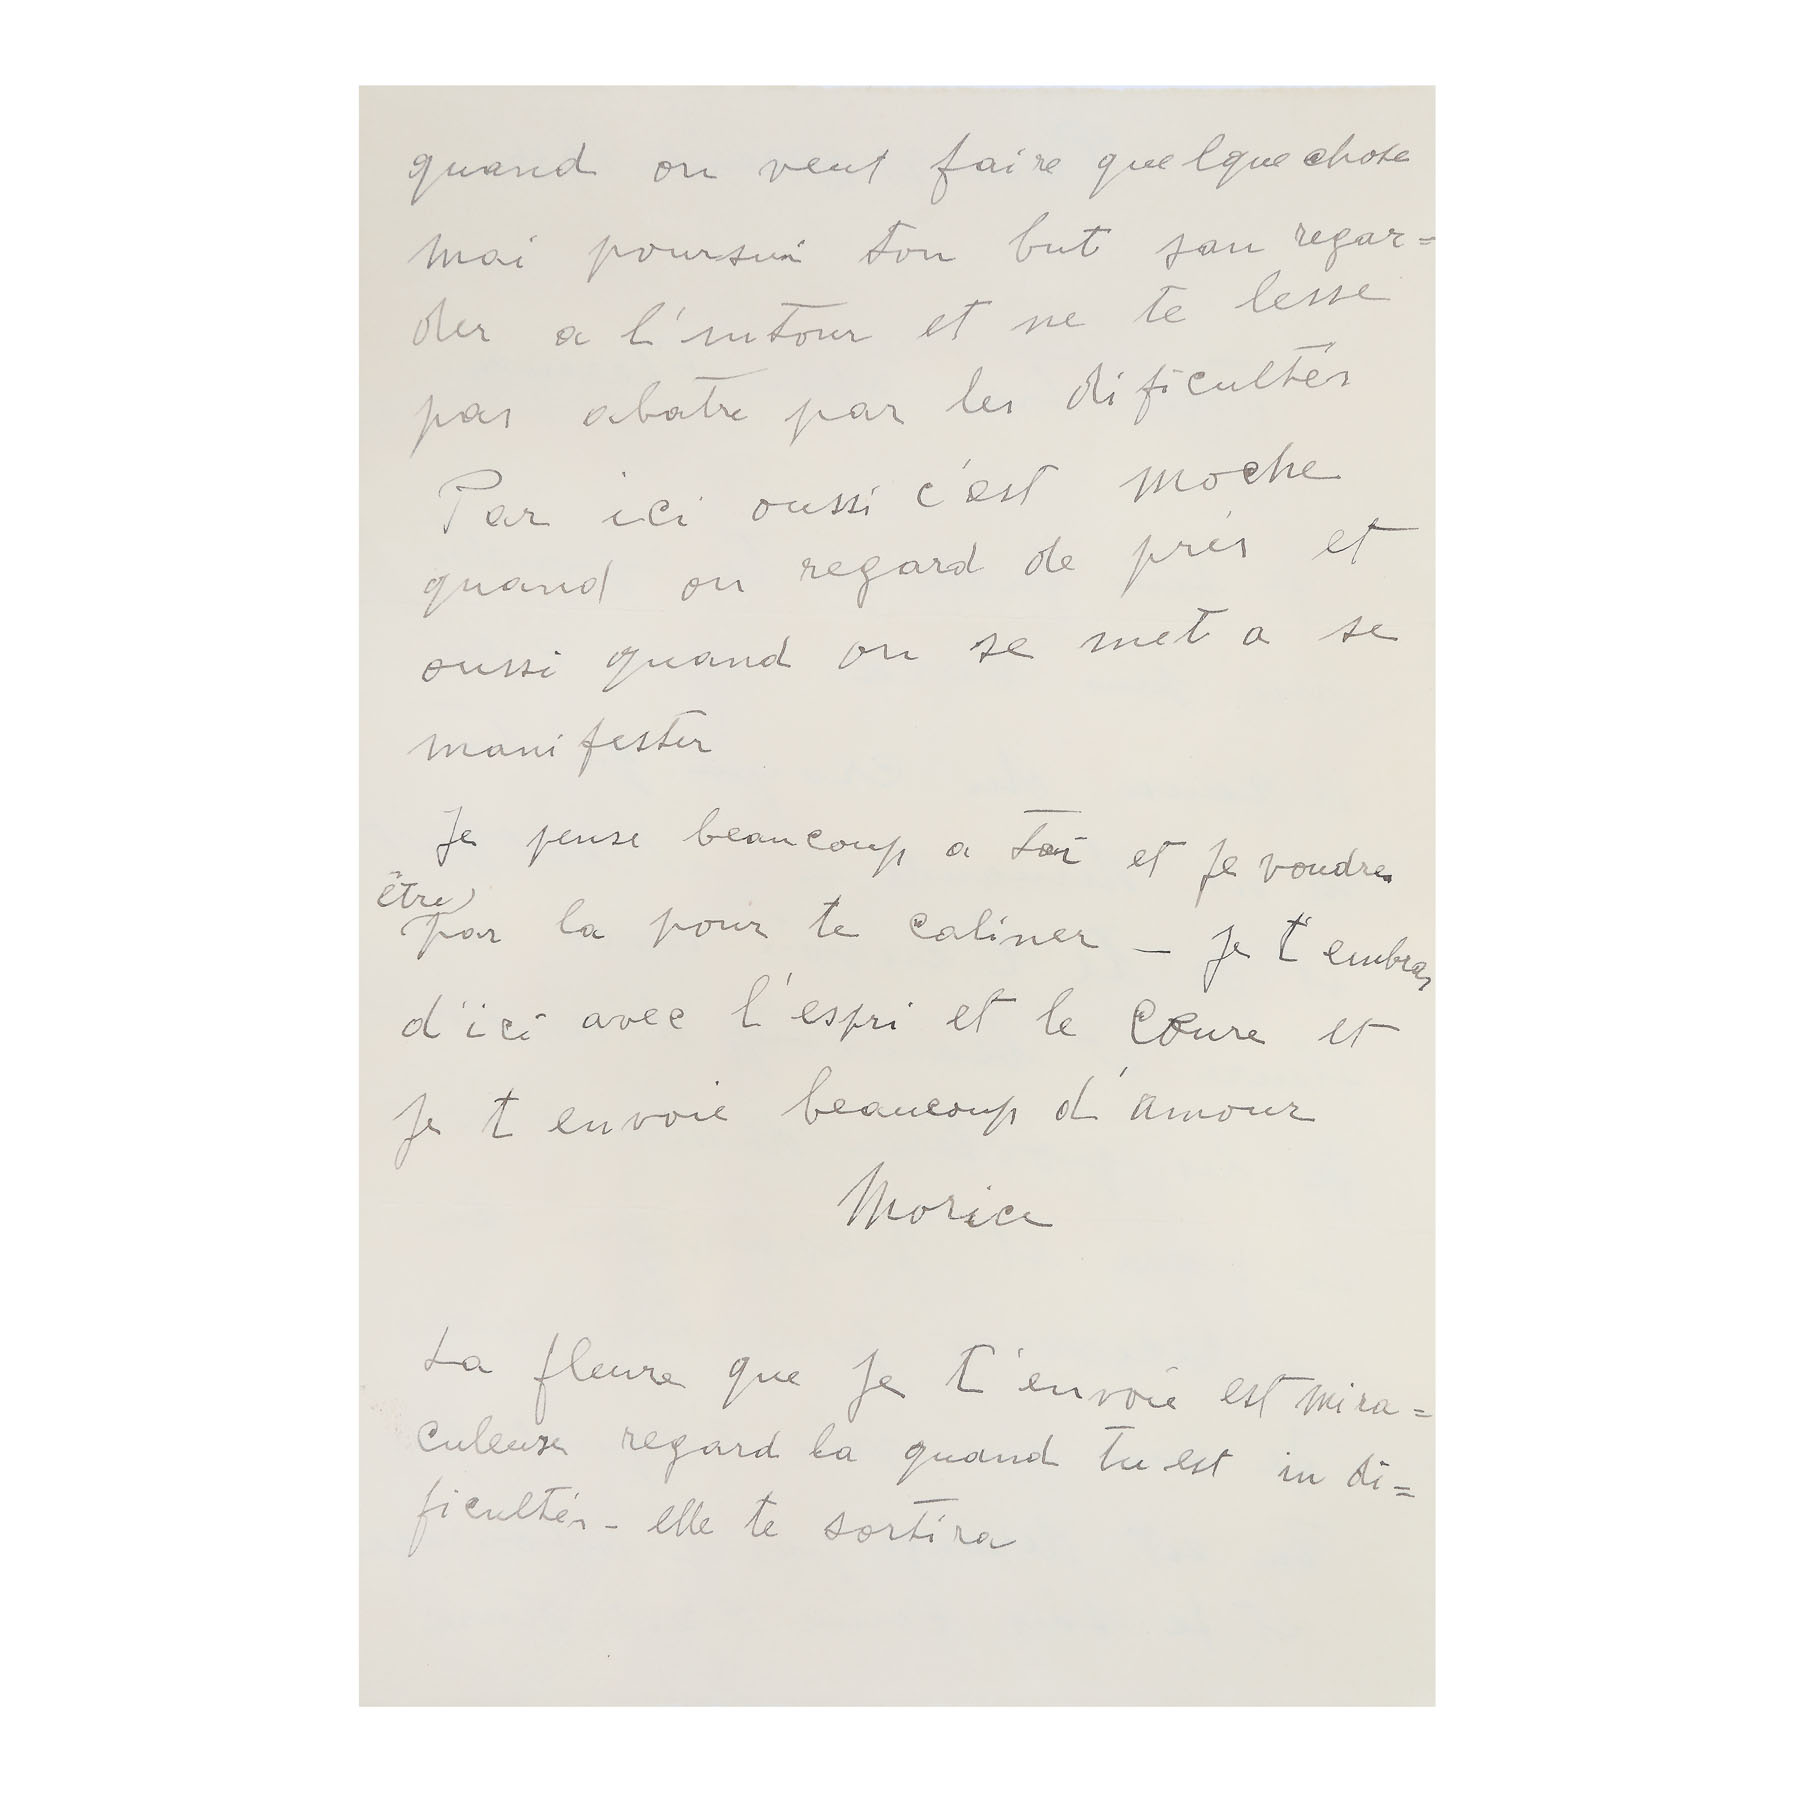 quand on veut faire quelque chose
mai poursui ton but san regar=
der a l'entour et ne te lesse
pas abatre par les dificultés
Par ici oussi c'est moche
quand on regard de près et
oussi quand on se met a se
manifester
Je pense beaucoup a toi et Je voudre
être
par la pour te caliner — Je t'embras
d'ici avec l'espri et le Coeure et
Je t envoie beaucoup d'amour
Morice
La fleure que Je t'envoie est mira=
culeuse regard la quand tu est in di=
ficultés - elle te sortira